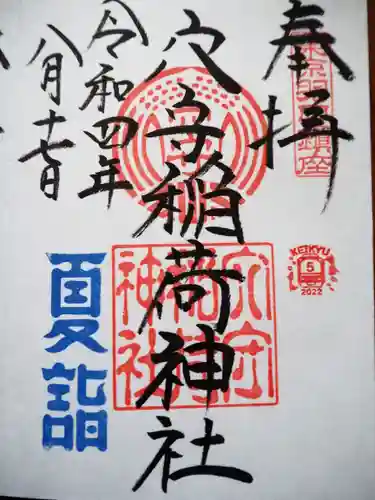 奉拝
東京羽田鎮座
穴守稲荷神社
穴守稲荷神社
KEIKYU
5
2022
令和四年
八月十七日
夏詣